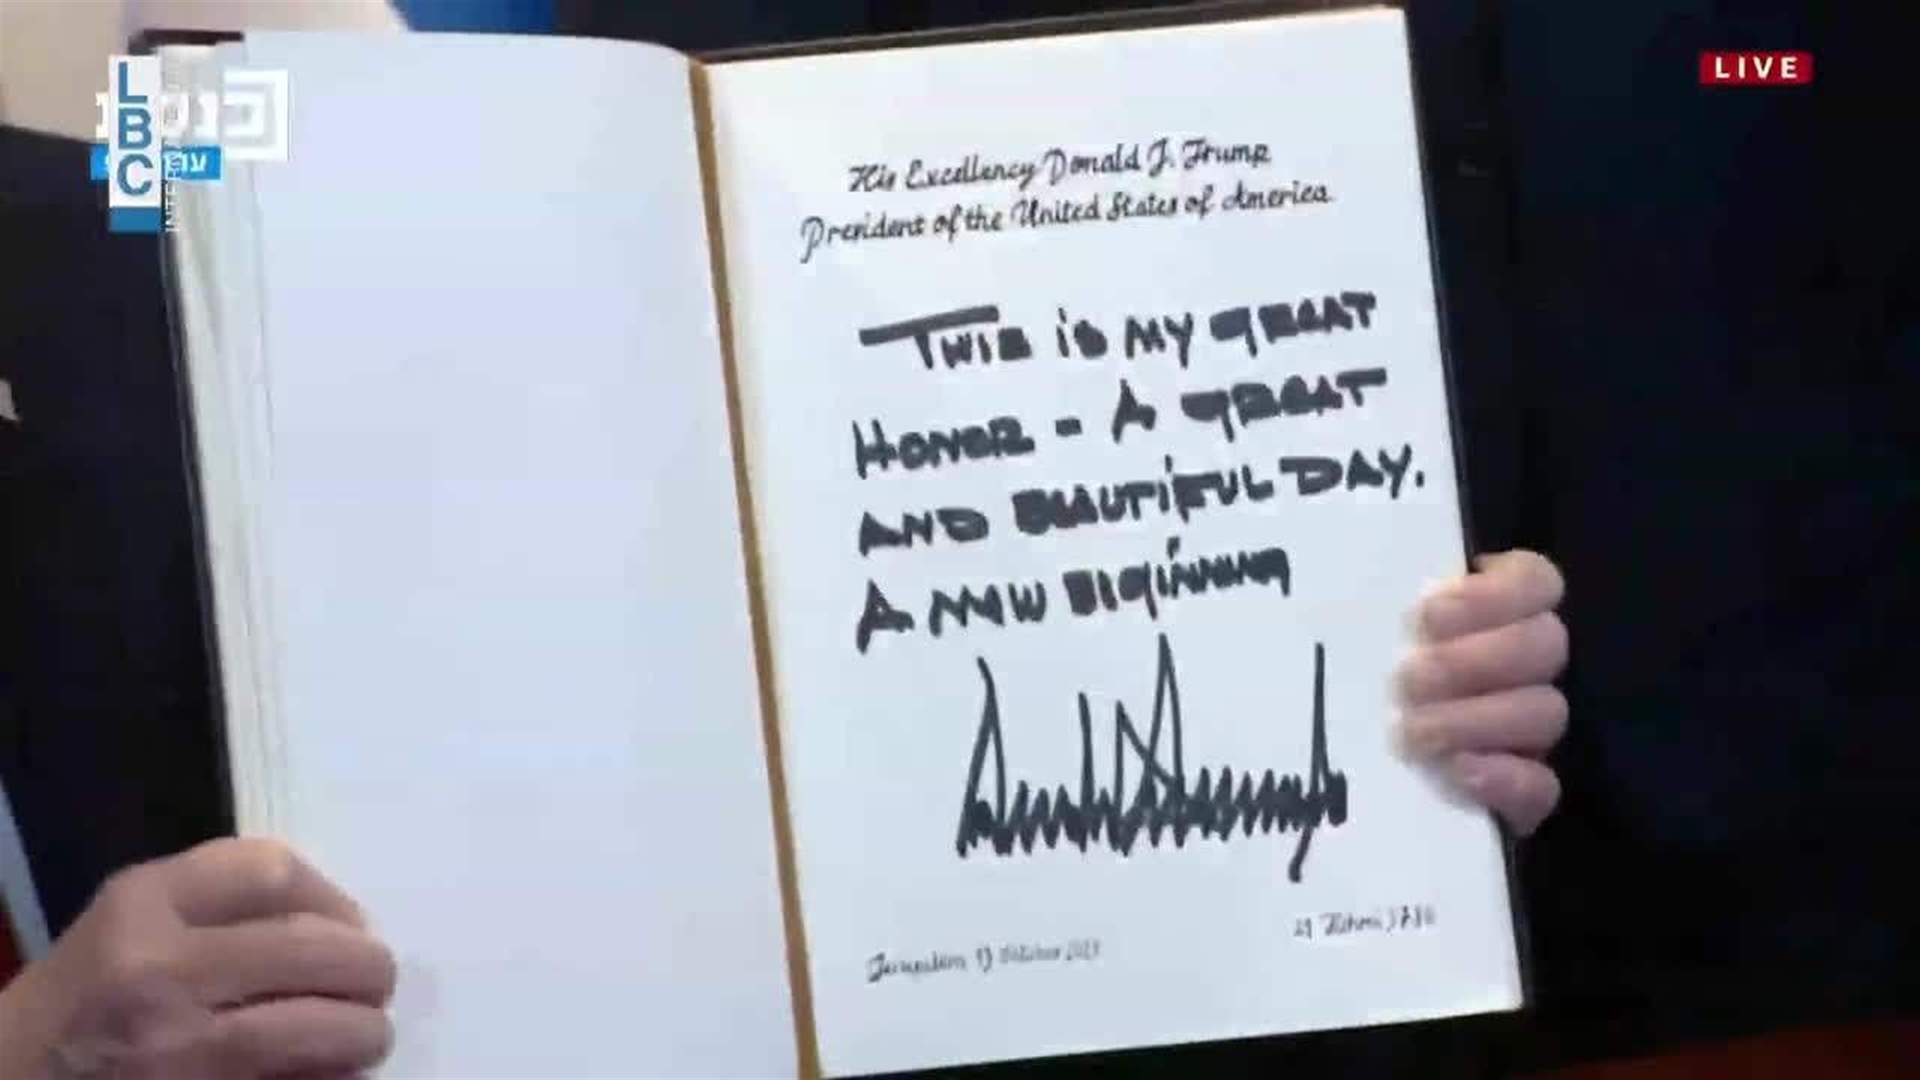 LBC
LIVE
His Excellency Donald J. Trump
President of the United States of America
THIS is MY GREAT
HONOR - A GREAT
AND BEAUTIFUL DAY.
A NEW BEGINNING
Jerusalem 13 October 2025
21 Tishrei 5786